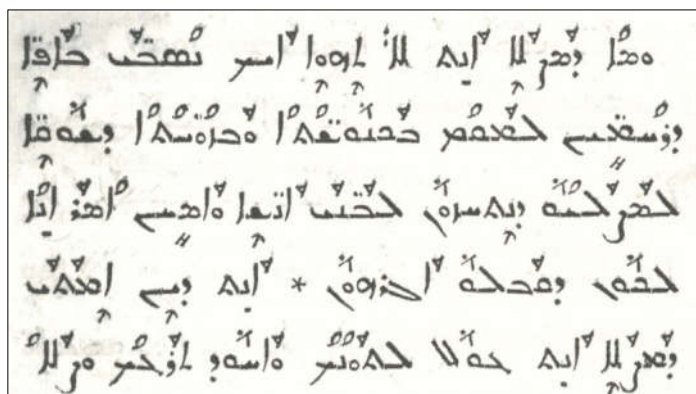 ܘܡܐ ܕܡܨܠܐ ܐܢܬ ܠܐ ܬܗܘܐ ܐܝܟ ܢܣܒ̈ܝ ܒܐܦ̈ܐ
ܕܪܚܡܝܢ ܠܡܩܡ ܒܟܢܘܫ̈ܬܐ ܘܒܙܘ̈ܝܬܐ ܕܫܘܩ̈ܐ
ܠܡܨܠܝܘ ܕܢܬܚܙܘܢ ܠܒܢ̈ܝ ܐܢ̈ܫܐ ܘܐܡܝܢ ܐܡܪ ܐܢܐ
ܠܟܘܢ ܕܩܒܠܘ ܐܓܪܗܘܢ * ܐܢܬ ܕܝܢ ܐܡܬܝ
ܕܡܨܠܐ ܐܢܬ ܥܘܠ ܠܬܘܢܟ ܘܐܚܘܕ ܬܪܥܟ ܘܨܠܐ